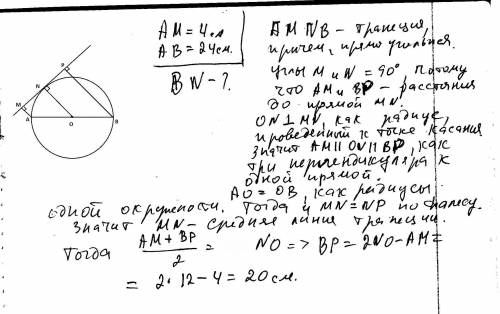 AM = 4см
AB = 24см.
BN - ?
P
N
M
A
O
B
AMNB - трапеция,
причем, прямоугольная.
углы M и N = 90°, потому
что AM и BP - расстояния
до прямой MN.
ON⊥MN, как радиус,
проведенный к точке касания
значит AM || ON || BP, как
три перпендикуляра к
одной прямой.
AO = OB, как радиусы
одной окружности. Тогда и MN = NP по Фалесу.
Значит MN - средняя линия трапеции.
Тогда (AM + BP)/2 = NO => BP = 2NO - AM =
= 2·12 - 4 = 20см.